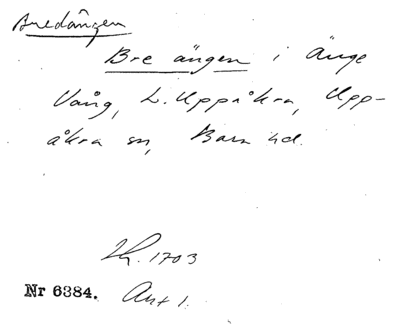 Bredängen
Bre ängen i Änge
Vång, L. Uppåkra, Upp-
åkra sn, Bara hd.
LK. 1703
Nr 6384. Akt 1.